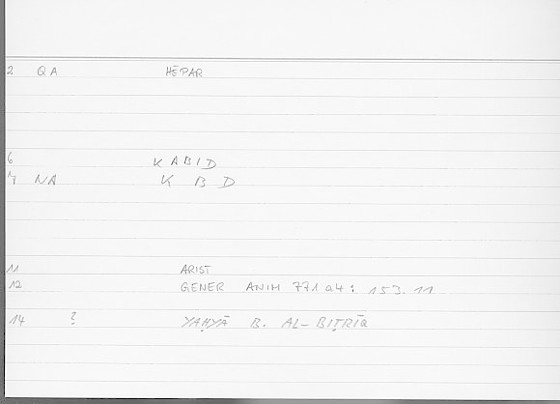 2 QA HĒPAR
6 KABID
7 NA K B D
11 ARIST
12 GENER ANIM 771a4: 153.11
14 ? YAḤYĀ B. AL-BIṬRĪQ